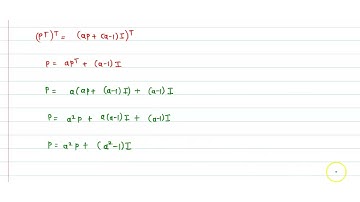 (P^T)^T = (aP + (a-1)I)^T
P = aP^T + (a-1)I
P = a(aP + (a-1)I) + (a-1)I
P = a²P + a(a-1)I + (a-1)I
P = a²P + (a²-1)I